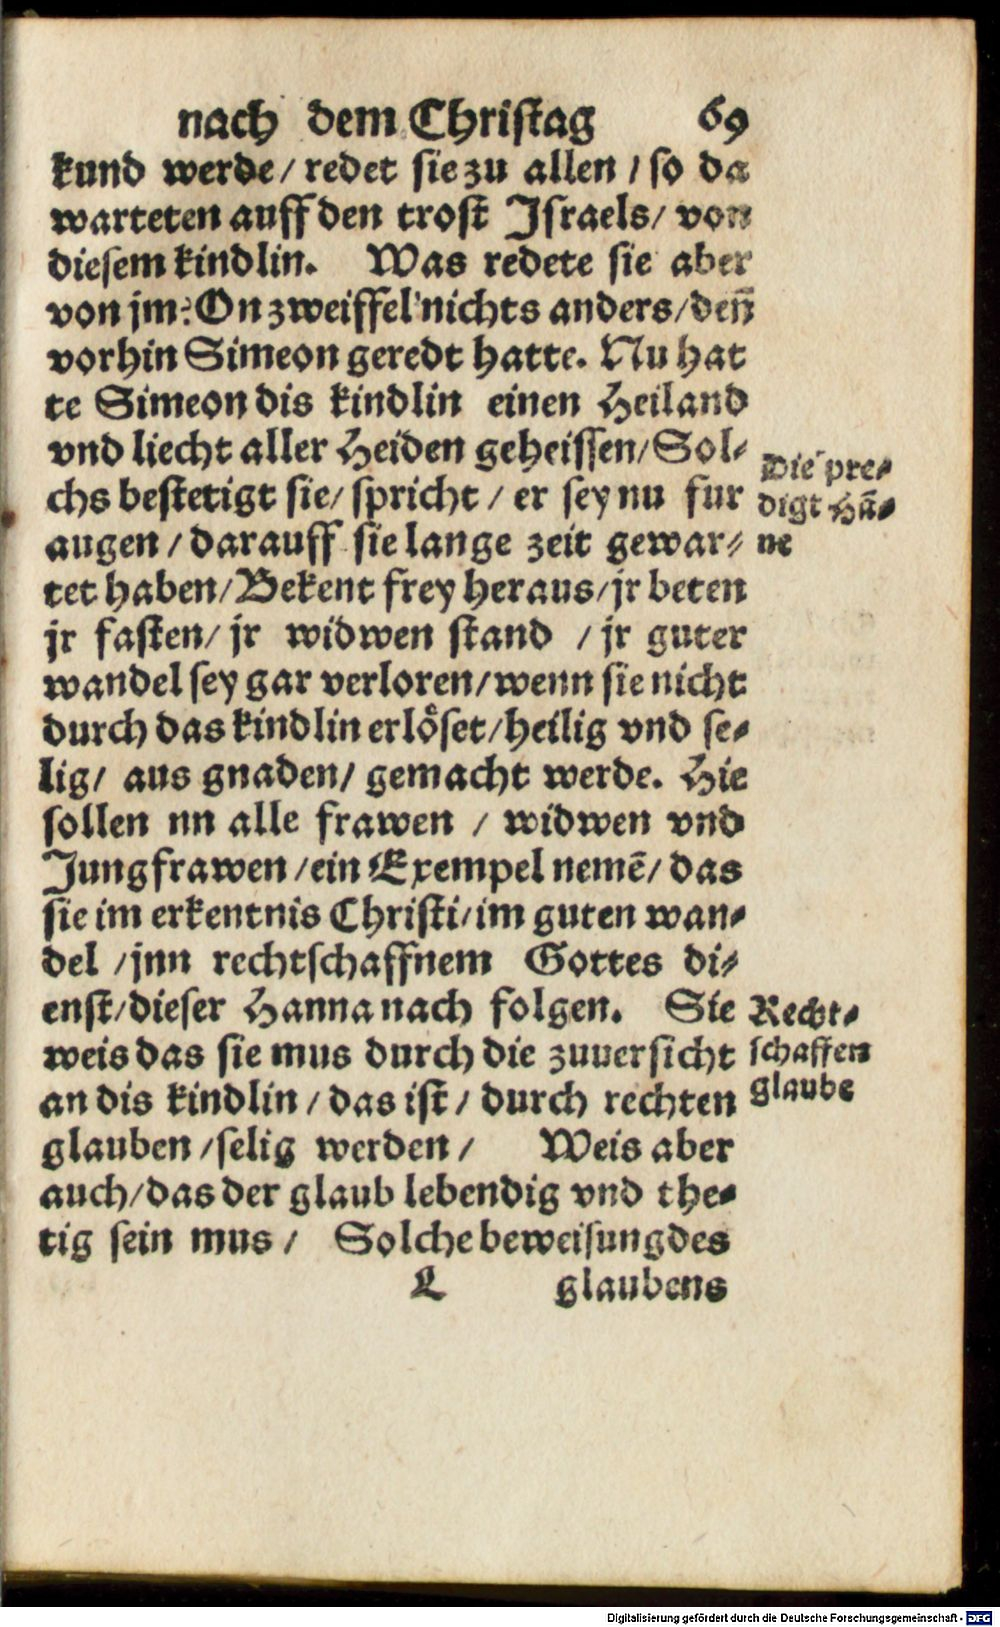 nach dem Christag 69
kund werde/ redet sie zu allen / so da
warteten auff den trost Israels/ von
diesem kindlin. Was redete sie aber
von jm? On zweiffel nichts anders/ den̄
vorhin Simeon geredt hatte. Nu hat
te Simeon dis kindlin einen Heiland
vnd liecht aller Heiden geheissen/ Sol-
chs bestetigt sie/ spricht / er sey nu fur
augen / darauff sie lange zeit gewar-
tet haben/ Bekent frey heraus/ jr beten
jr fasten/ jr widwen stand / jr guter
wandel sey gar verloren/ wenn sie nicht
durch das kindlin erlöset/ heilig vnd se-
lig/ aus gnaden/ gemacht werde. Hie
sollen nn alle frawen / widwen vnd
Jungfrawen / ein Exempel nemē/ das
sie im erkentnis Christi/ im guten wan-
del / jnn rechtschaffnem Gottes di-
enst/ dieser Hanna nach folgen. Sie
weis das sie mus durch die zuuersicht
an dis kindlin / das ist / durch rechten
glauben / selig werden / Weis aber
auch/ das der glaub lebendig vnd the-
tig sein mus / Solche beweisung des
L glaubens
Die pre-
digt Hā-
ne
Recht-
schaffen
glaube
Digitalisierung gefördert durch die Deutsche Forschungsgemeinschaft - DFG